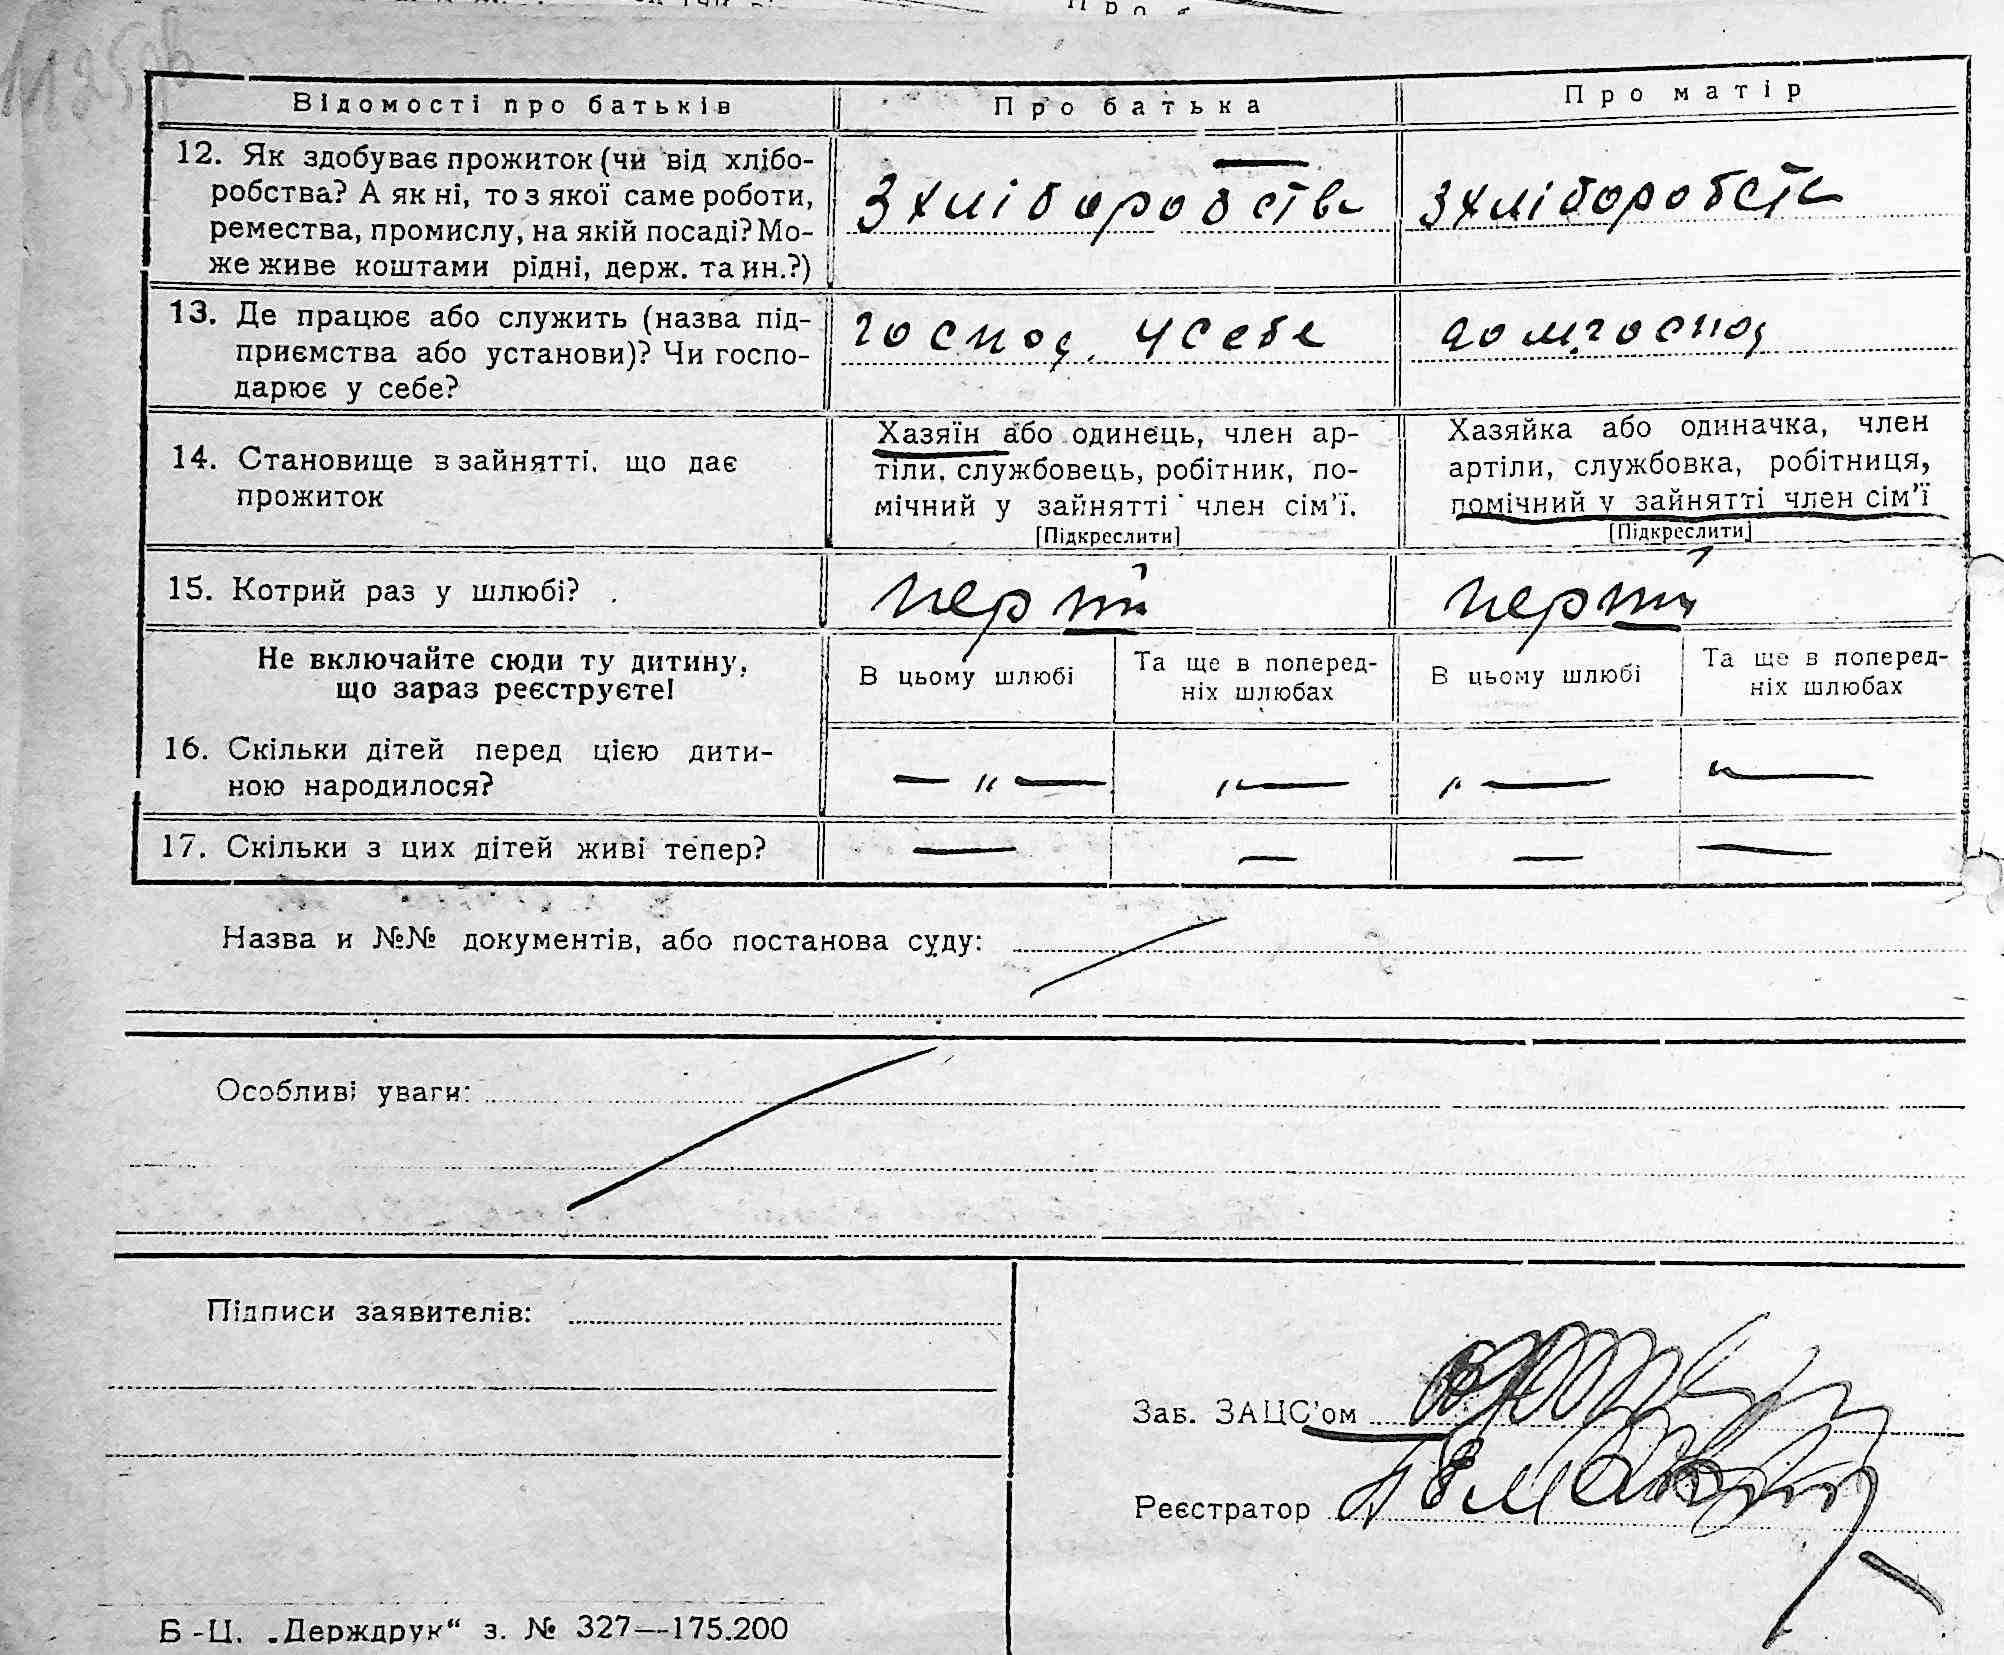 Відомості про батьків
Про батька
Про матір
12. Як здобуває прожиток (чи від хлібо-
робства? А як ні, то з якої саме роботи,
ремества, промислу, на якій посаді? Мо-
же живе коштами рідні, держ. та ин.?)
З хліборобства
З хліборобств
13. Де працює або служить (назва під-
приємства або установи)? Чи госпо-
дарює у себе?
господ. у себе
дом.господ
14. Становище в зайнятті, що дає
прожиток
Хазяїн або одинець, член ар-
тіли, службовець, робітник, по-
мічний у зайнятті член сім'ї.
[Підкреслити]
Хазяйка або одиначка, член
артіли, службовка, робітниця,
помічний у зайнятті член сім'ї
[Підкреслити]
15. Котрий раз у шлюбі?
перший
перший
Не включайте сюди ту дитину,
що зараз реєструєте!
В цьому шлюбі
Та ще в поперед-
ніх шлюбах
В цьому шлюбі
Та ще в поперед-
ніх шлюбах
16. Скільки дітей перед цією дити-
ною народилося?
— „ —
„ —
„ —
„ —
17. Скільки з цих дітей живі тепер?
—
—
—
—
Назва и №№ документів, або постанова суду:
Особливі уваги:
Підписи заявителів:
Зав. ЗАЦС'ом
Реєстратор
Б-Ц. „Держдрук“ з. № 327—175.200